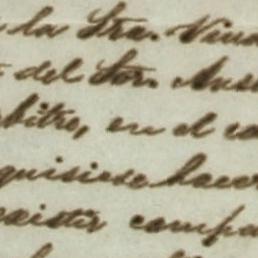 la Sra. Viud
del Sor.
bitro, en el ca
quisiese hacer
existir compa